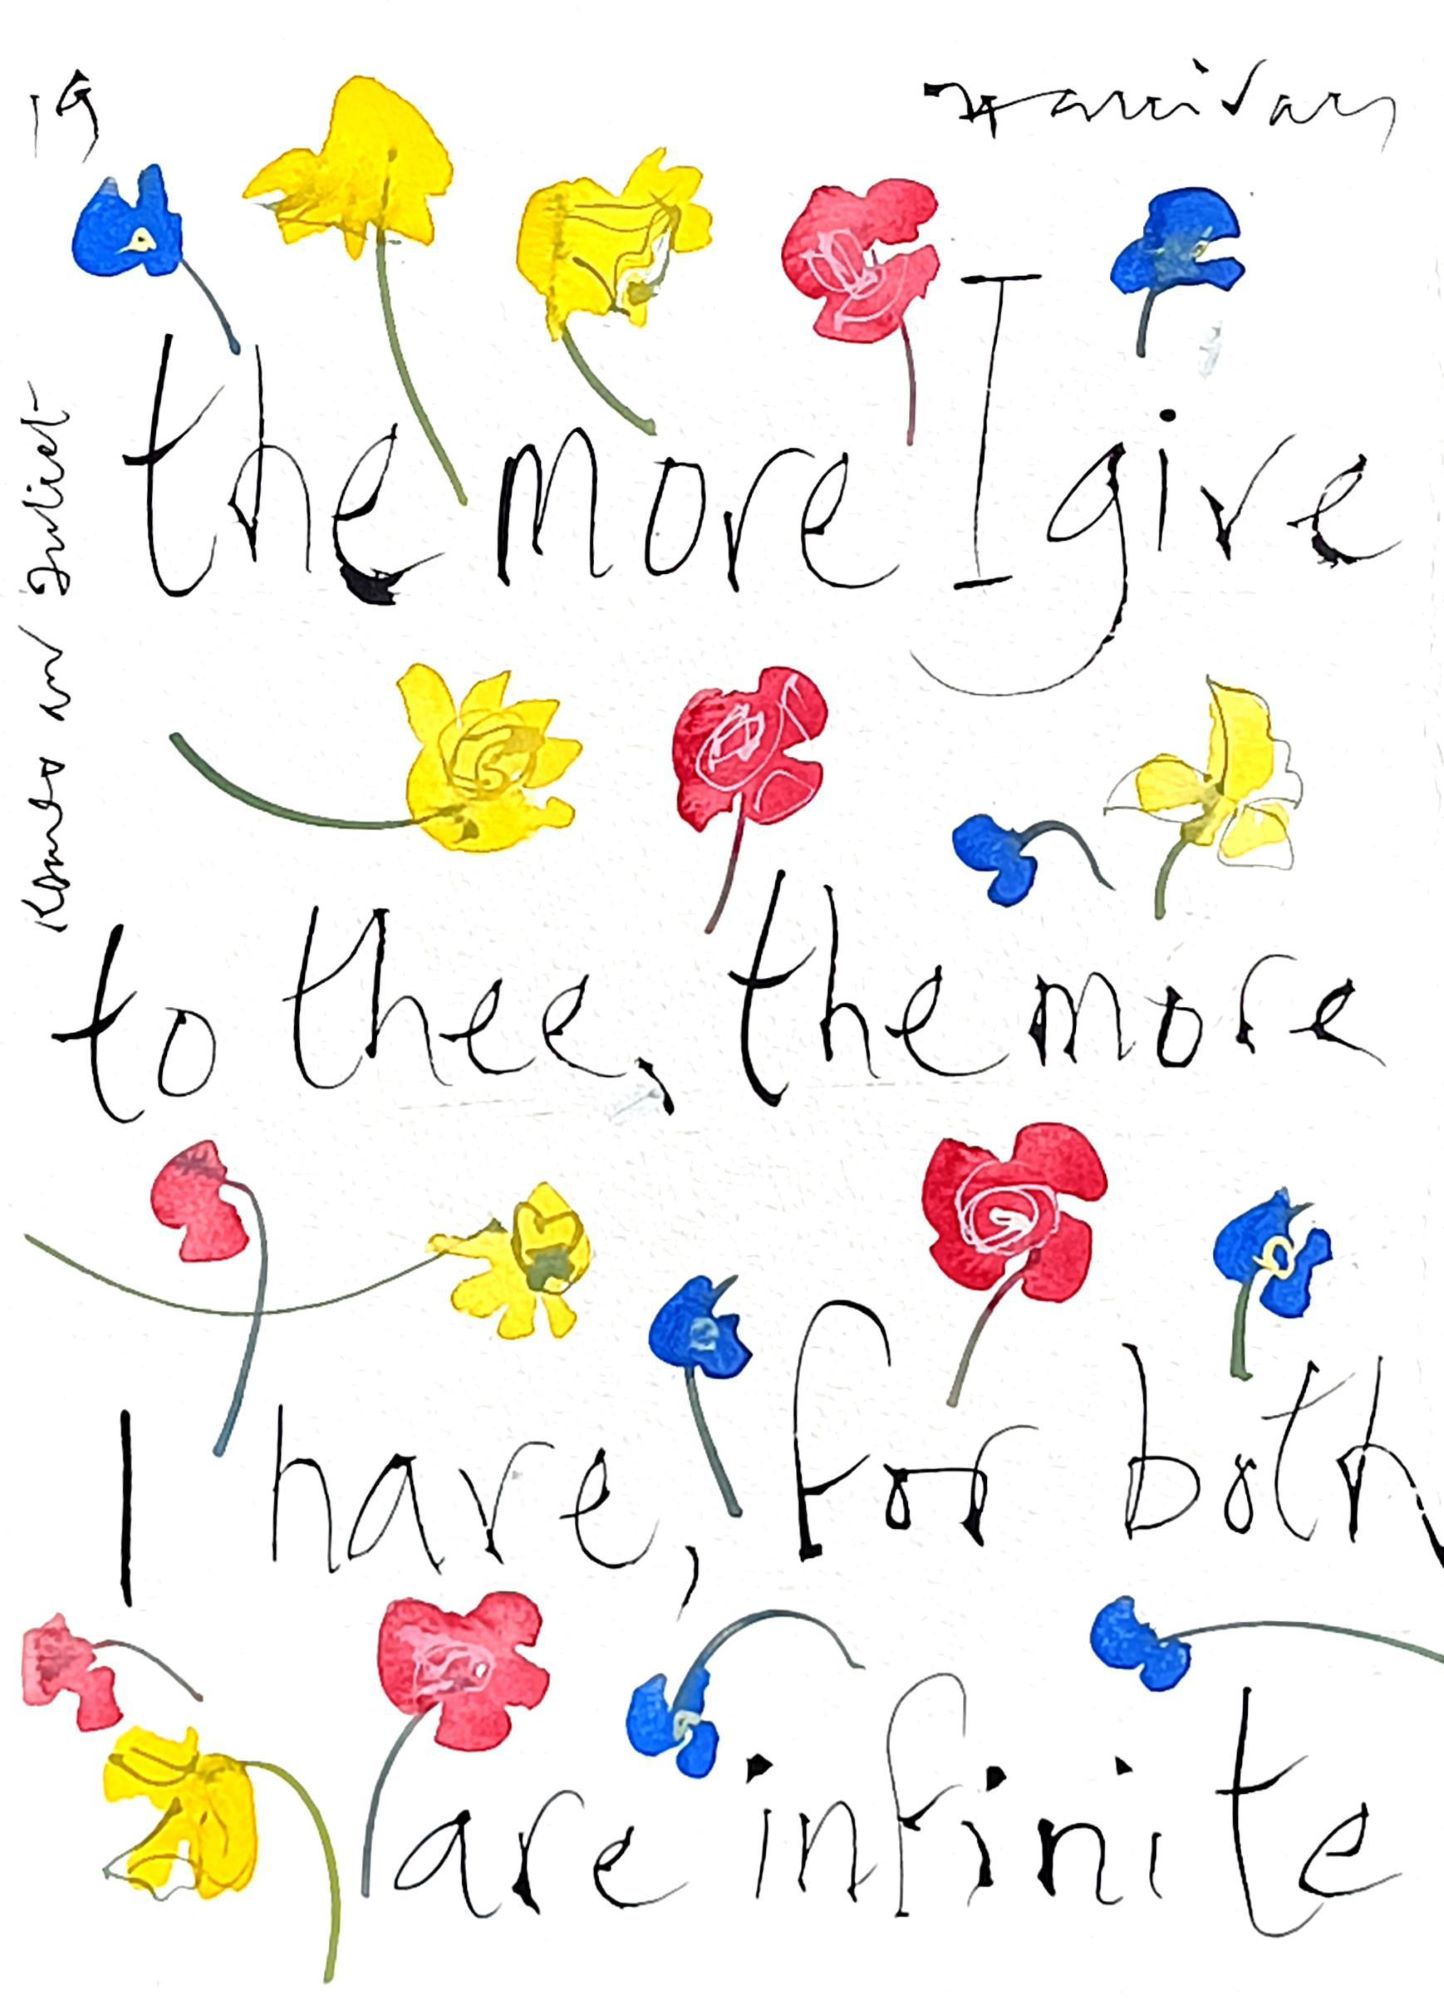 19
the more I give
to thee, the more
I have, for both
are infinite
Romeo an Juliet